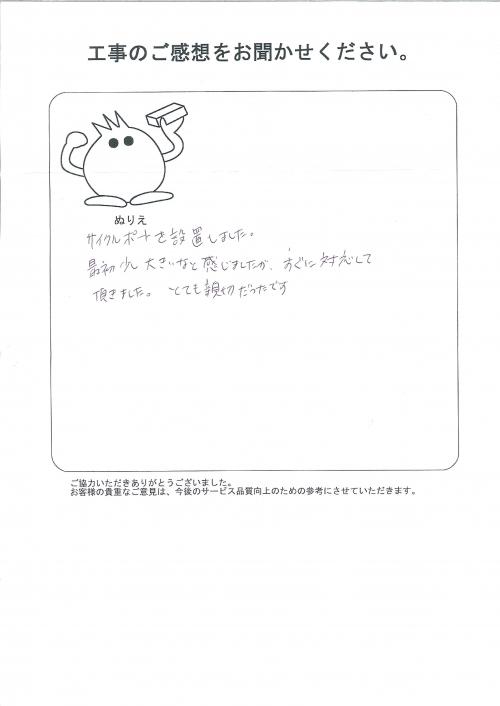 工事のご感想をお聞かせください。
ぬりえ
サイクルポートを設置しました。
最初少し大きいなと感じましたが、すぐに対応して
頂きました。とても親切だったです
ご協力いただきありがとうございました。
お客様の貴重なご意見は、今後のサービス品質向上のための参考にさせていただきます。